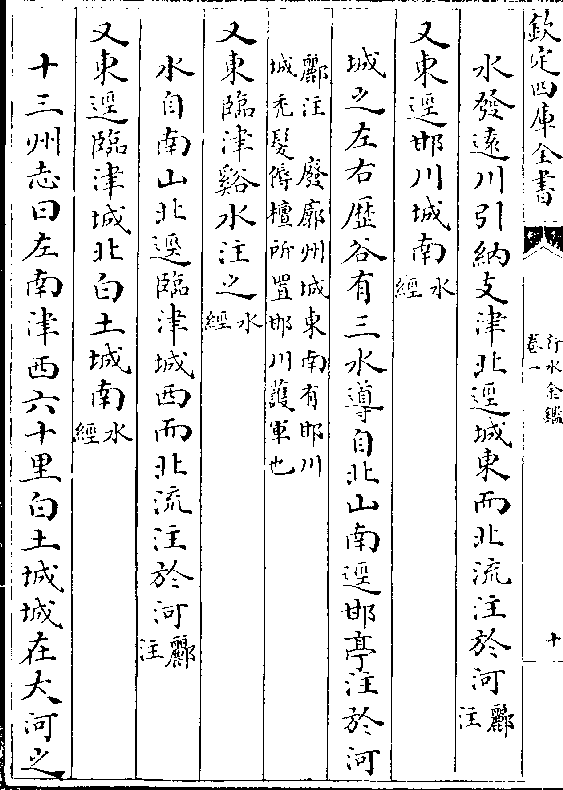 欽定四庫全書
行水金鑑
卷一
十
水發遠川引納支津北逕城東而北流注於河酈注
又東逕邯川城南水經
城之左右歷谷有三水導自北山南逕邯亭注於河
酈注　廢廓州城東南有邯川
城禿髮傉檀所置邯川護軍也
又東臨津谿水注之水經
水自南山北逕臨津城西而北流注於河酈注
又東逕臨津城北白土城南水經
十三州志曰左南津西六十里白土城城在大河之